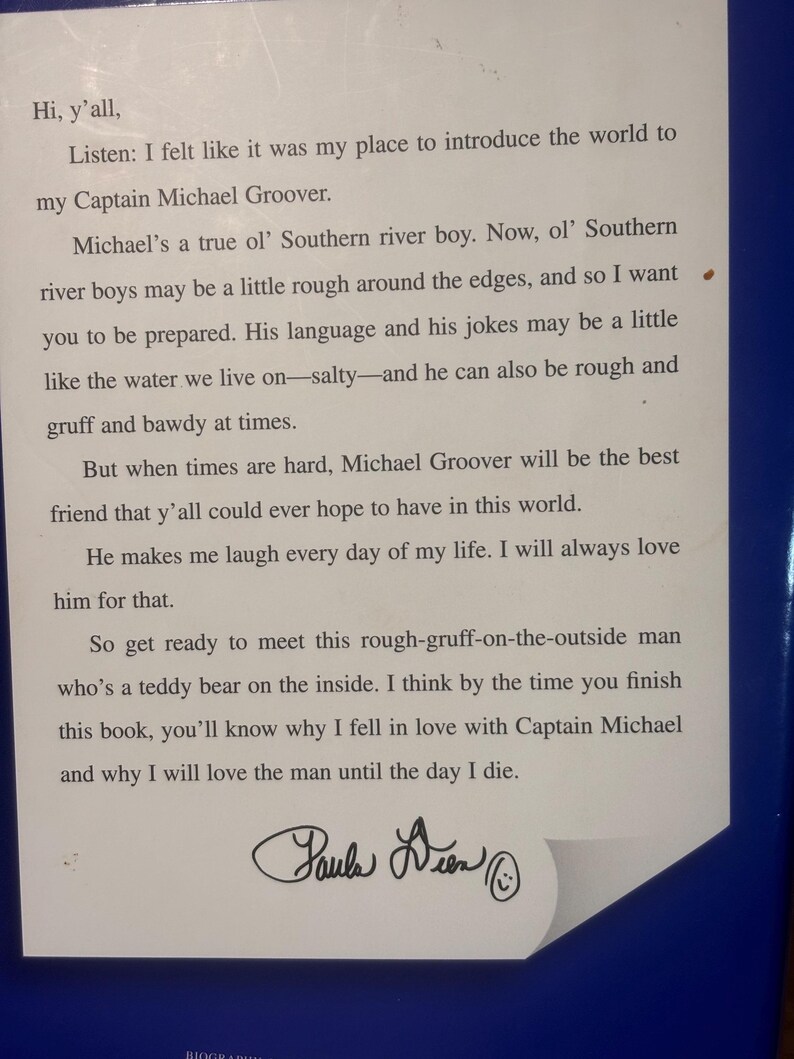 Hi, y’all,
Listen: I felt like it was my place to introduce the world to
my Captain Michael Groover.
Michael’s a true ol’ Southern river boy. Now, ol’ Southern
river boys may be a little rough around the edges, and so I want
you to be prepared. His language and his jokes may be a little
like the water we live on—salty—and he can also be rough and
gruff and bawdy at times.
But when times are hard, Michael Groover will be the best
friend that y’all could ever hope to have in this world.
He makes me laugh every day of my life. I will always love
him for that.
So get ready to meet this rough-gruff-on-the-outside man
who’s a teddy bear on the inside. I think by the time you finish
this book, you’ll know why I fell in love with Captain Michael
and why I will love the man until the day I die.
Paula Deen